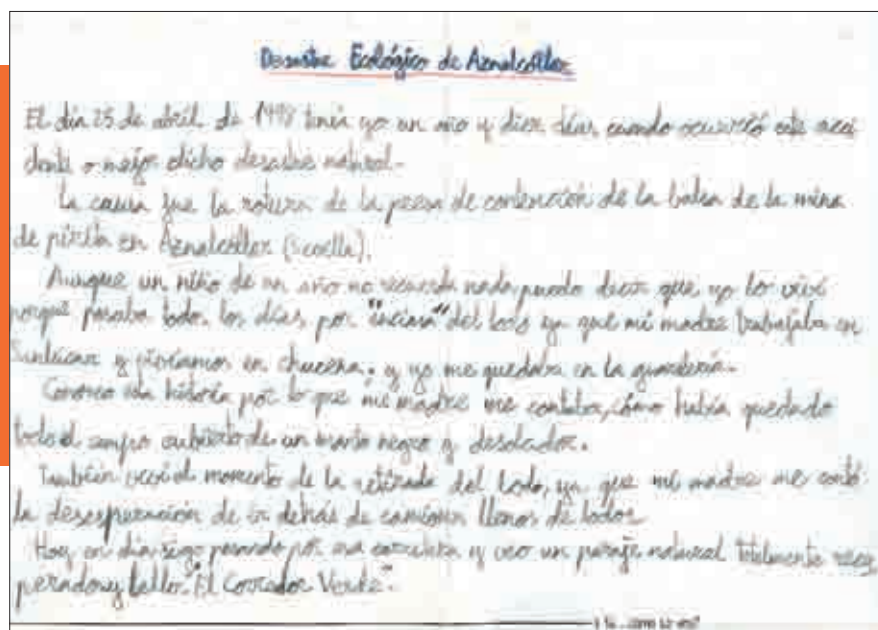 Desastre Ecológico de Aznalcóllar
El día 25 de abril de 1998 tenía yo un año y diez días, cuando ocurrió este acci
dente o mejor dicho desastre natural.
La causa fue la rotura de la presa de contención de la balsa de la mina
de pirita en Aznalcóllar (Sevilla).
Aunque un niño de un año no recuerda nada puedo decir que yo lo viví
porque pasaba todos los días, por "encima" del lodo ya que mi madre trabajaba en
Sanlúcar y vivíamos en chucena. y yo me quedaba en la guardería.
Conozco esta historia por lo que mi madre me contaba, cómo había quedado
todo el campo cubierto de un manto negro y desolador.
También viví el momento de la retirada del lodo, ya que mi madre me contó
la desesperación de ir detrás de camiones llenos de lodos
Hoy en día sigo pasando por esa carretera y veo un paraje natural totalmente recu
perado y bello. "El Corredor Verde".